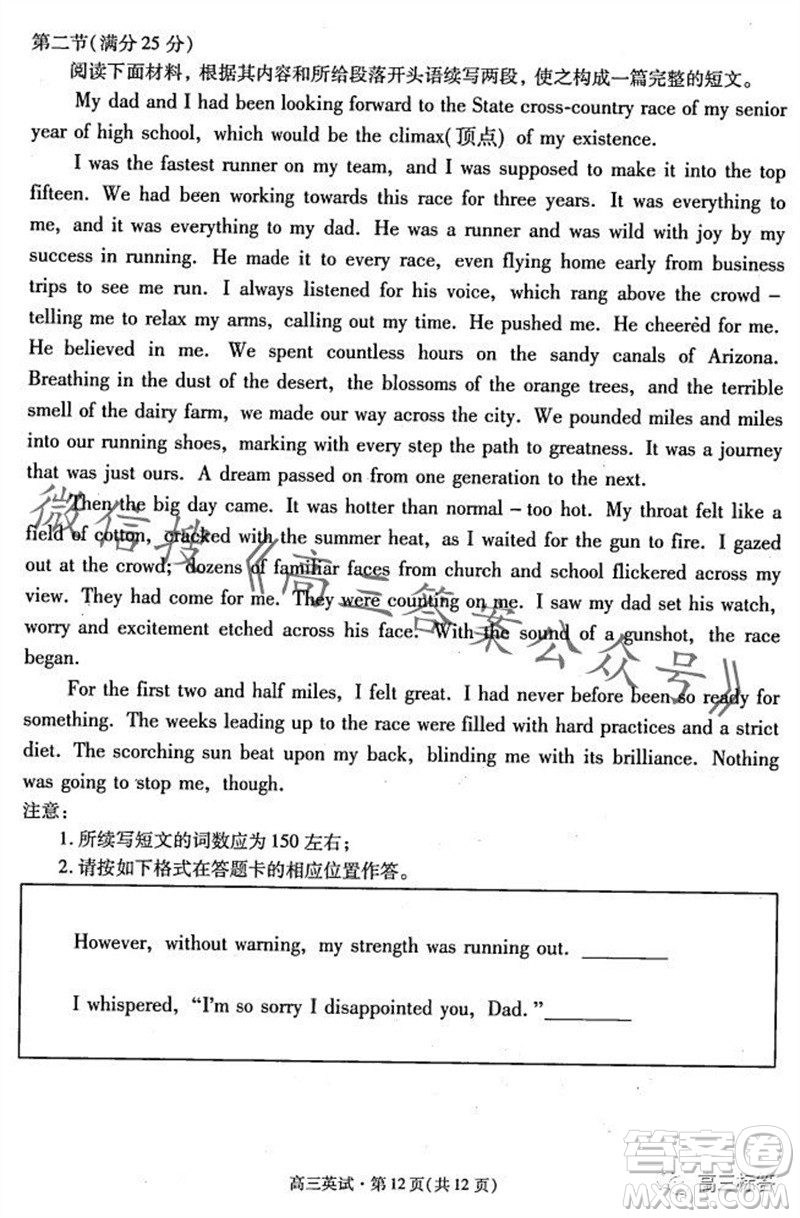 第二节(满分25分)
阅读下面材料，根据其内容和所给段落开头语续写两段，使之构成一篇完整的短文。
My dad and I had been looking forward to the State cross-country race of my senior
year of high school, which would be the climax(顶点) of my existence.
I was the fastest runner on my team, and I was supposed to make it into the top
fifteen. We had been working towards this race for three years. It was everything to
me, and it was everything to my dad. He was a runner and was wild with joy by my
success in running. He made it to every race, even flying home early from business
trips to see me run. I always listened for his voice, which rang above the crowd –
telling me to relax my arms, calling out my time. He pushed me. He cheered for me.
He believed in me. We spent countless hours on the sandy canals of Arizona.
Breathing in the dust of the desert, the blossoms of the orange trees, and the terrible
smell of the dairy farm, we made our way across the city. We pounded miles and miles
into our running shoes, marking with every step the path to greatness. It was a journey
that was just ours. A dream passed on from one generation to the next.
Then the big day came. It was hotter than normal – too hot. My throat felt like a
field of cotton, cracked with the summer heat, as I waited for the gun to fire. I gazed
out at the crowd; dozens of familiar faces from church and school flickered across my
view. They had come for me. They were counting on me. I saw my dad set his watch,
worry and excitement etched across his face. With the sound of a gunshot, the race
began.
For the first two and half miles, I felt great. I had never before been so ready for
something. The weeks leading up to the race were filled with hard practices and a strict
diet. The scorching sun beat upon my back, blinding me with its brilliance. Nothing
was going to stop me, though.
注意：
1. 所续写短文的词数应为150左右；
2. 请按如下格式在答题卡的相应位置作答。
However, without warning, my strength was running out. ________
I whispered, “I'm so sorry I disappointed you, Dad.”________
高三英试·第12页(共12页)
微信搜《高三答案公众号》
答案卷
高三标答
MXQE.COM